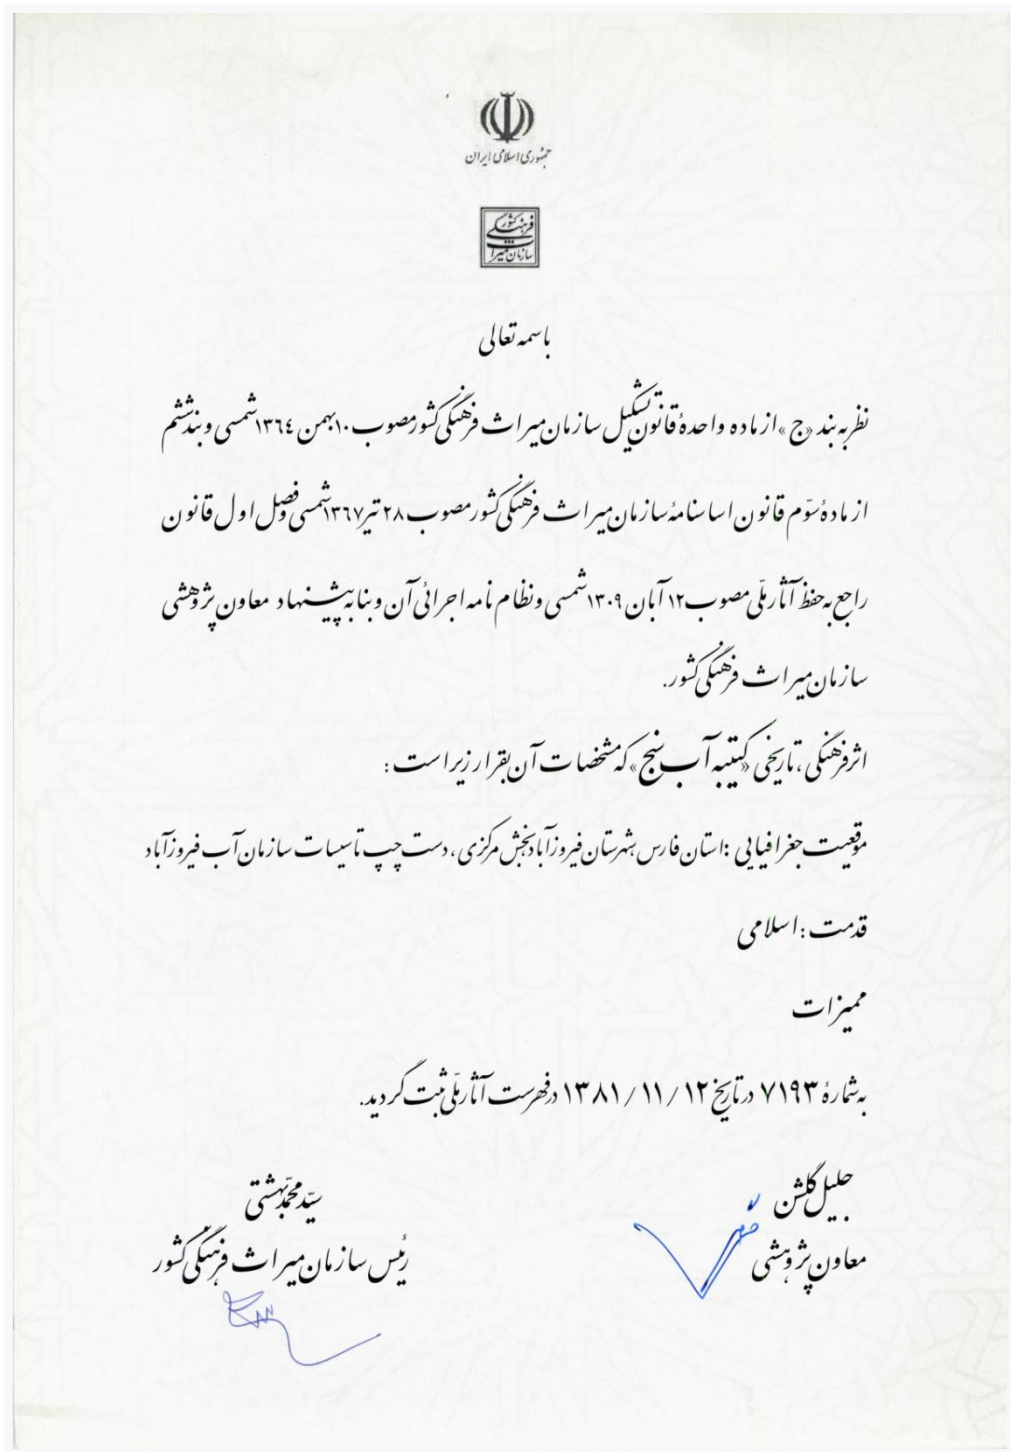 جمهوری اسلامی ایران
سازمان میراث فرهنگی کشور
باسمه تعالی
نظر به بند «ج» از ماده واحدهٔ قانون تشکیل سازمان میراث فرهنگی کشور مصوب ۱۰ بهمن ۱۳۶۴ شمسی و بند ششم
از مادهٔ سوّم قانون اساسنامهٔ سازمان میراث فرهنگی کشور مصوب ۲۸ تیر ۱۳۶۷ شمسی و فصل اول قانون
راجع به حفظ آثار ملّی مصوب ۱۲ آبان ۱۳۰۹ شمسی و نظام نامه اجرائی آن و بنا به پیشنهاد معاون پژوهشی
سازمان میراث فرهنگی کشور.
اثر فرهنگی، تاریخی «کتیبه آب سنج» که مشخصات آن بقرار زیر است :
موقعیت جغرافیایی :استان فارس، شهرستان فیروزآباد، بخش مرکزی، دست چپ تاسیسات سازمان آب فیروزآباد
قدمت :اسلامی
ممیزات
به شمارهٔ ۷۱۹۳ در تاریخ ۱۲ / ۱۱ / ۱۳۸۱ در فهرست آثار ملّی ثبت گردید.
جلیل گلشن
معاون پژوهشی
سیّد محمّد بهشتی
رئیس سازمان میراث فرهنگی کشور